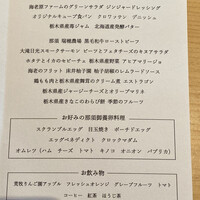 海老原ファームのグリーンサラダ ジンジャードレッシング
オリジナルキューブ食パン クロワッサン デニッシュ
栃木県産苺ジャム 北海道産発酵バター
那須 瑞穂農場 黒毛和牛ローストビーフ
大滝日光スモークサーモン ビーツとフェタチーズのキヌアサラダ
ホタテとイカのセビーチェ 栃木県産野菜 アヒアマリージョ
海老のフリット 床井柚子園 柚子胡椒のレムラードソース
鶏もも肉と栃木県産舞茸のクリーム煮 エストラゴン
栃木県産トマトとチーズのオーブン焼き
栃木県産きなこのわらび餅 季節のフルーツ
お好みの那須御養卵料理
スクランブルエッグ 目玉焼き ポーチドエッグ
エッグベネディクト クロックマダム
オムレツ(ハム チーズ トマト キノコ オニオン パプリカ)
お飲み物
荒牧りんご園アップル フレッシュオレンジ グレープフルーツ トマト
コーヒー 紅茶 ほうじ茶